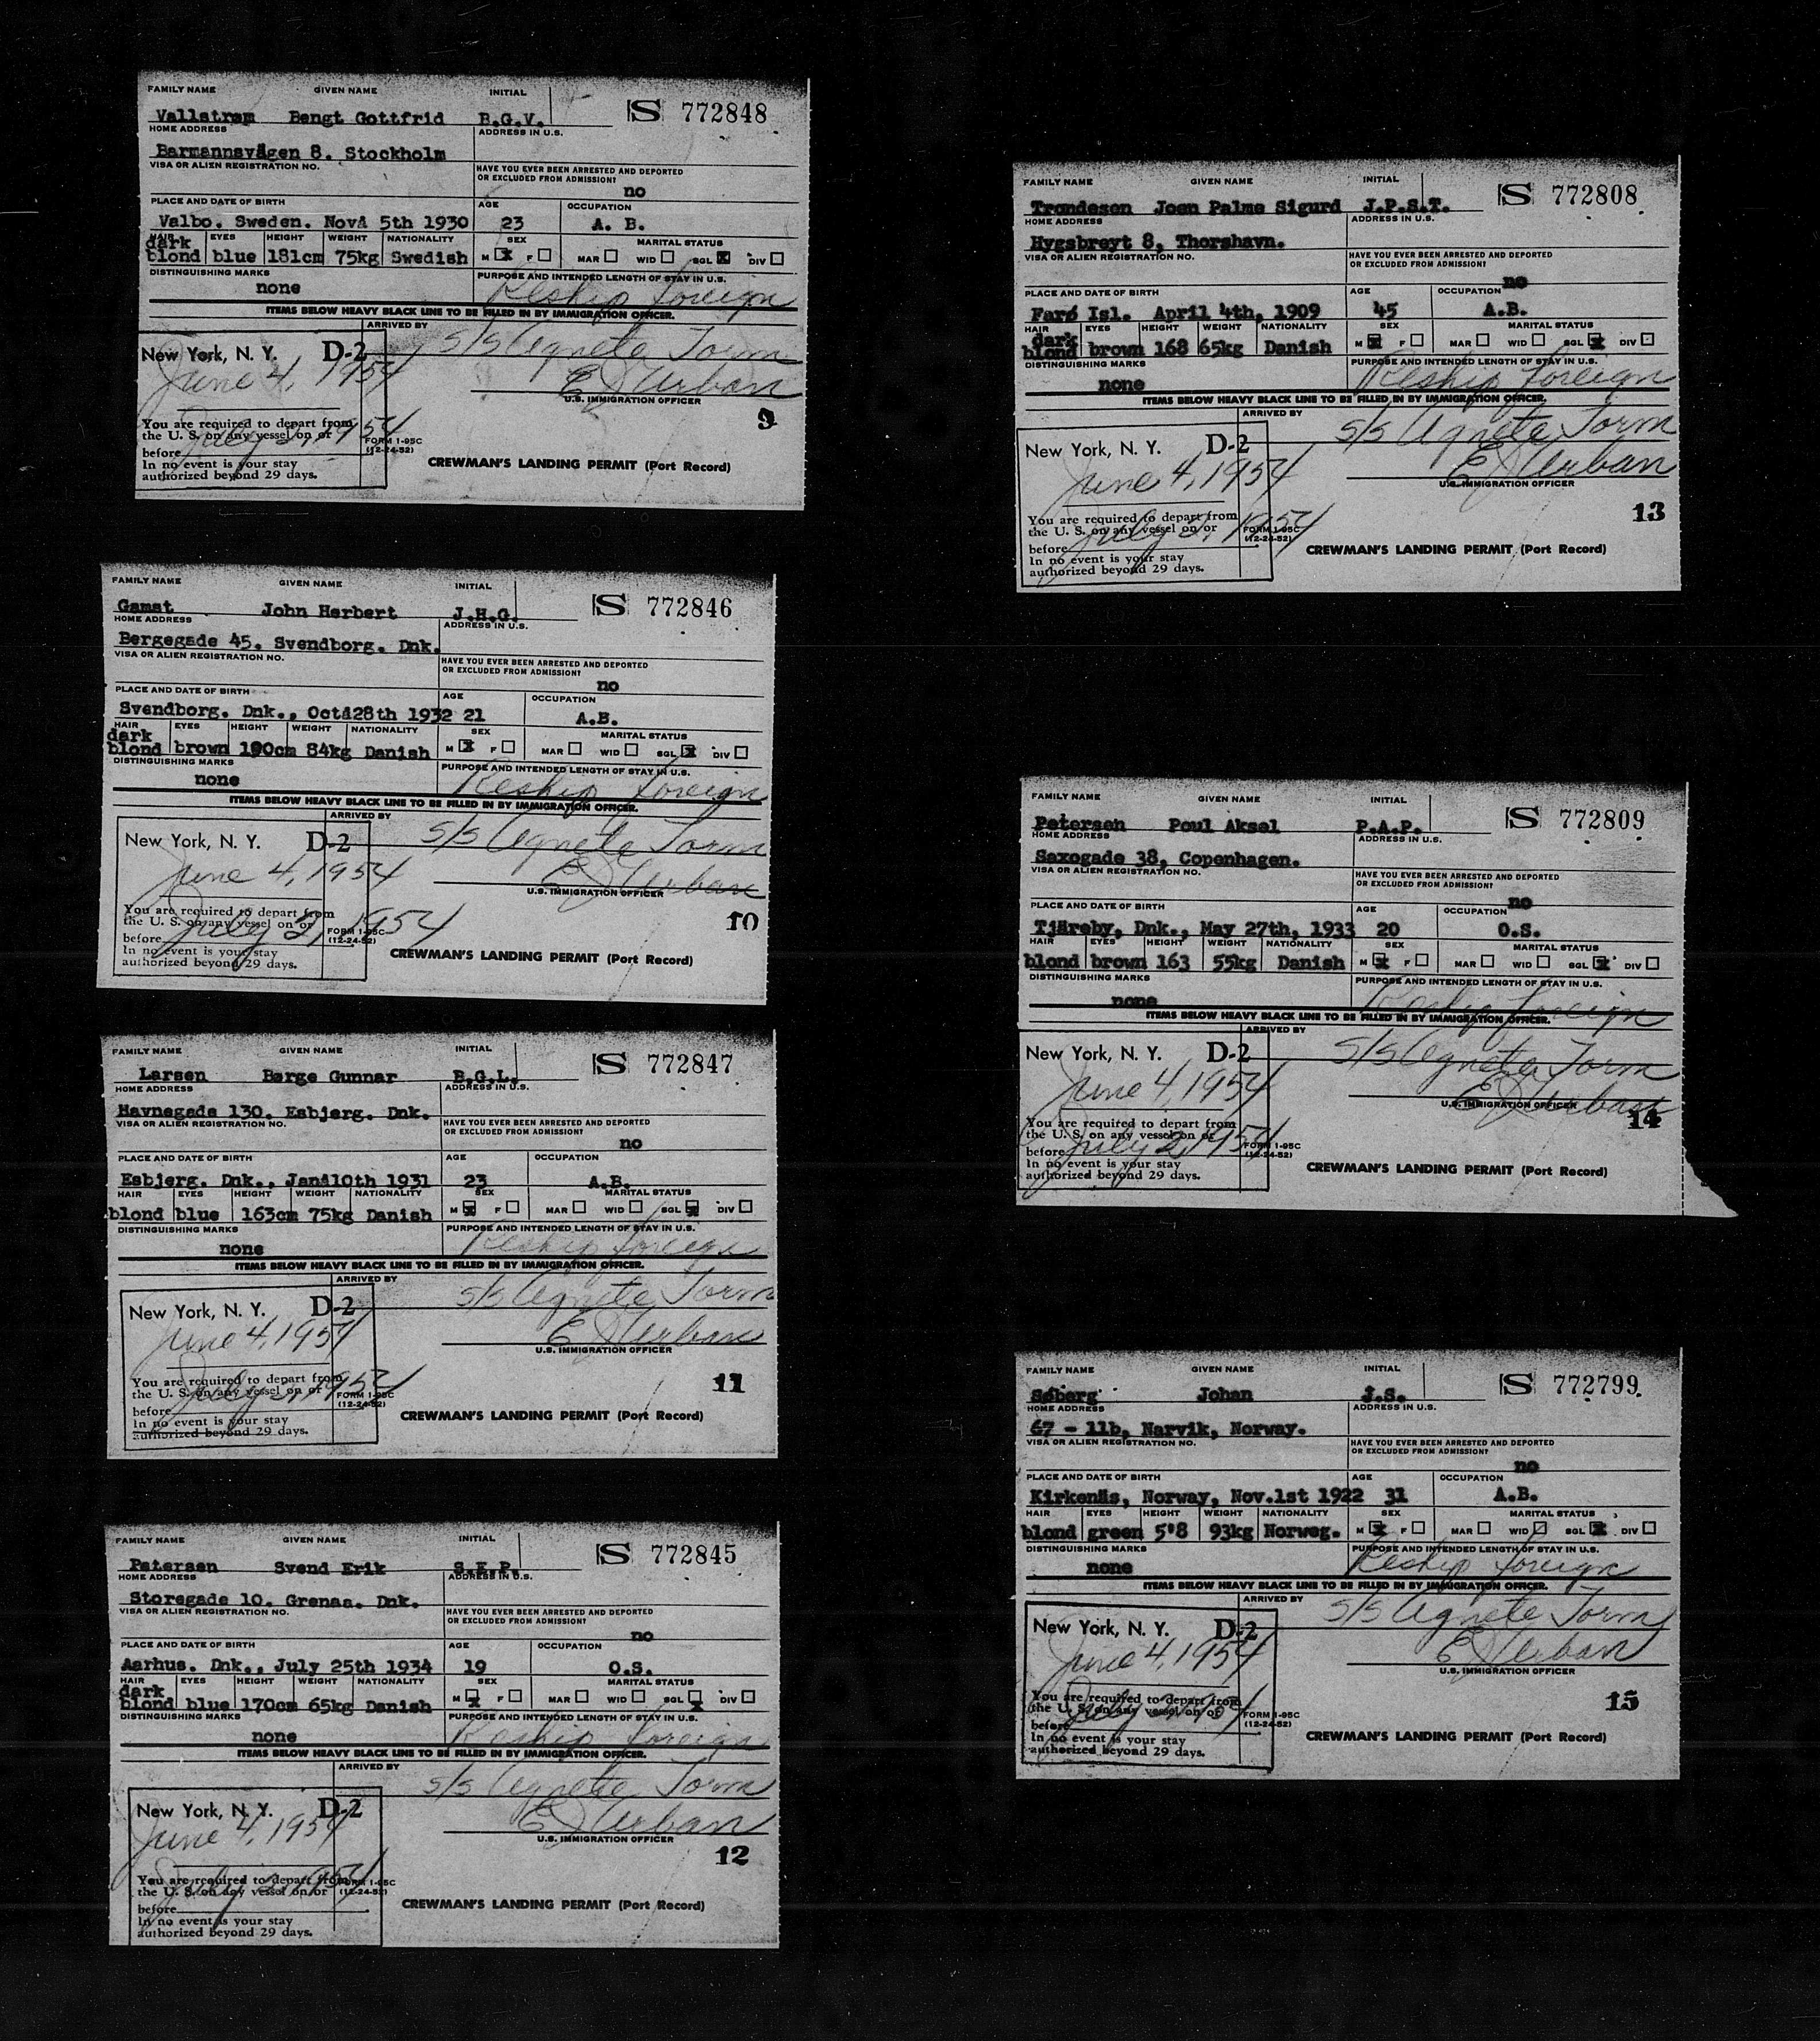 FAMILY NAME GIVEN NAME INITIAL
S 772848
Vallstrøm Bengt Gottfrid B.G.V.
HOME ADDRESS ADDRESS IN U.S.
Barmannsvägen 8. Stockholm
VISA OR ALIEN REGISTRATION NO. HAVE YOU EVER BEEN ARRESTED AND DEPORTED
OR EXCLUDED FROM ADMISSION?
no
PLACE AND DATE OF BIRTH AGE OCCUPATION
Valbo. Sweden. Nová 5th 1930 23 A. B.
HAIR EYES HEIGHT WEIGHT NATIONALITY SEX MARITAL STATUS
dark
blond blue 181cm 75kg Swedish M x F MAR WID SGL x DIV
DISTINGUISHING MARKS PURPOSE AND INTENDED LENGTH OF STAY IN U.S.
none Reship foreign
ITEMS BELOW HEAVY BLACK LINE TO BE FILLED IN BY IMMIGRATION OFFICER.
ARRIVED BY
New York, N. Y. D-2 S/S Agnete Torm
June 4, 1954 E J Urban
U.S. IMMIGRATION OFFICER
9
You are required to depart from
the U. S. on any vessel on or
before July 2, 1954
FORM 1-95C
(12-24-52)
In no event is your stay
authorized beyond 29 days.
CREWMAN'S LANDING PERMIT (Port Record)
FAMILY NAME GIVEN NAME INITIAL
S 772846
Gamst John Herbert J.H.G.
HOME ADDRESS ADDRESS IN U.S.
Bergegade 45. Svendborg. Dnk.
VISA OR ALIEN REGISTRATION NO. HAVE YOU EVER BEEN ARRESTED AND DEPORTED
OR EXCLUDED FROM ADMISSION?
no
PLACE AND DATE OF BIRTH AGE OCCUPATION
Svendborg. Dnk., Octá28th 1932 21 A.B.
HAIR EYES HEIGHT WEIGHT NATIONALITY SEX MARITAL STATUS
dark
blond brown 190cm 84kg Danish M x F MAR WID SGL x DIV
DISTINGUISHING MARKS PURPOSE AND INTENDED LENGTH OF STAY IN U.S.
none Reship foreign
ITEMS BELOW HEAVY BLACK LINE TO BE FILLED IN BY IMMIGRATION OFFICER.
ARRIVED BY
New York, N. Y. D-2 S/S Agnete Torm
June 4, 1954 E J Urban
U.S. IMMIGRATION OFFICER
10
You are required to depart from
the U. S. on any vessel on or
before July 2, 1954
FORM 1-95C
(12-24-52)
In no event is your stay
authorized beyond 29 days.
CREWMAN'S LANDING PERMIT (Port Record)
FAMILY NAME GIVEN NAME INITIAL
S 772847
Larsen Børge Gunnar B.G.L.
HOME ADDRESS ADDRESS IN U.S.
Havnegade 130. Esbjerg. Dnk.
VISA OR ALIEN REGISTRATION NO. HAVE YOU EVER BEEN ARRESTED AND DEPORTED
OR EXCLUDED FROM ADMISSION?
no
PLACE AND DATE OF BIRTH AGE OCCUPATION
Esbjerg. Dnk., Janá10th 1931 23 A.B.
HAIR EYES HEIGHT WEIGHT NATIONALITY SEX MARITAL STATUS
blond blue 163cm 75kg Danish M x F MAR WID SGL x DIV
DISTINGUISHING MARKS PURPOSE AND INTENDED LENGTH OF STAY IN U.S.
none Reship foreign
ITEMS BELOW HEAVY BLACK LINE TO BE FILLED IN BY IMMIGRATION OFFICER.
ARRIVED BY
New York, N. Y. D-2 S/S Agnete Torm
June 4, 1954 E J Urban
U.S. IMMIGRATION OFFICER
11
You are required to depart from
the U. S. on any vessel on or
before July 2, 1954
FORM 1-95C
(12-24-52)
In no event is your stay
authorized beyond 29 days.
CREWMAN'S LANDING PERMIT (Port Record)
FAMILY NAME GIVEN NAME INITIAL
S 772845
Petersen Svend Erik S.E.P.
HOME ADDRESS ADDRESS IN U.S.
Storegade 10. Grenaa. Dnk.
VISA OR ALIEN REGISTRATION NO. HAVE YOU EVER BEEN ARRESTED AND DEPORTED
OR EXCLUDED FROM ADMISSION?
no
PLACE AND DATE OF BIRTH AGE OCCUPATION
Aarhus. Dnk., July 25th 1934 19 O.S.
HAIR EYES HEIGHT WEIGHT NATIONALITY SEX MARITAL STATUS
dark
blond blue 170cm 65kg Danish M x F MAR WID SGL x DIV
DISTINGUISHING MARKS PURPOSE AND INTENDED LENGTH OF STAY IN U.S.
none Reship foreign
ITEMS BELOW HEAVY BLACK LINE TO BE FILLED IN BY IMMIGRATION OFFICER.
ARRIVED BY
New York, N. Y. D-2 S/S Agnete Torm
June 4, 1954 E J Urban
U.S. IMMIGRATION OFFICER
12
You are required to depart from
the U. S. on any vessel on or
before July 2, 1954
FORM 1-95C
(12-24-52)
In no event is your stay
authorized beyond 29 days.
CREWMAN'S LANDING PERMIT (Port Record)
FAMILY NAME GIVEN NAME INITIAL
S 772808
Trondesen Joen Palme Sigurd J.P.S.T.
HOME ADDRESS ADDRESS IN U.S.
Hygsbreyt 8, Thorshavn.
VISA OR ALIEN REGISTRATION NO. HAVE YOU EVER BEEN ARRESTED AND DEPORTED
OR EXCLUDED FROM ADMISSION?
no
PLACE AND DATE OF BIRTH AGE OCCUPATION
Farø Isl. April 4th, 1909 45 A.B.
HAIR EYES HEIGHT WEIGHT NATIONALITY SEX MARITAL STATUS
dark
blond brown 168 65kg Danish M x F MAR WID SGL x DIV
DISTINGUISHING MARKS PURPOSE AND INTENDED LENGTH OF STAY IN U.S.
none Reship foreign
ITEMS BELOW HEAVY BLACK LINE TO BE FILLED IN BY IMMIGRATION OFFICER.
ARRIVED BY
New York, N. Y. D-2 S/S Agnete Torm
June 4, 1954 E J Urban
U.S. IMMIGRATION OFFICER
13
You are required to depart from
the U. S. on any vessel on or
before July 2, 1954
FORM 1-95C
(12-24-52)
In no event is your stay
authorized beyond 29 days.
CREWMAN'S LANDING PERMIT (Port Record)
FAMILY NAME GIVEN NAME INITIAL
S 772809
Petersen Poul Aksel P.A.P.
HOME ADDRESS ADDRESS IN U.S.
Saxogade 38, Copenhagen.
VISA OR ALIEN REGISTRATION NO. HAVE YOU EVER BEEN ARRESTED AND DEPORTED
OR EXCLUDED FROM ADMISSION?
no
PLACE AND DATE OF BIRTH AGE OCCUPATION
Tjäreby, Dnk., May 27th, 1933 20 O.S.
HAIR EYES HEIGHT WEIGHT NATIONALITY SEX MARITAL STATUS
blond brown 163 55kg Danish M x F MAR WID SGL x DIV
DISTINGUISHING MARKS PURPOSE AND INTENDED LENGTH OF STAY IN U.S.
none Reship foreign
ITEMS BELOW HEAVY BLACK LINE TO BE FILLED IN BY IMMIGRATION OFFICER.
ARRIVED BY
New York, N. Y. D-2 S/S Agnete Torm
June 4, 1954 E J Urban
U.S. IMMIGRATION OFFICER
14
You are required to depart from
the U. S. on any vessel on or
before July 2 1954
FORM 1-95C
(12-24-52)
In no event is your stay
authorized beyond 29 days.
CREWMAN'S LANDING PERMIT (Port Record)
FAMILY NAME GIVEN NAME INITIAL
S 772799
Søberg Johan J.S.
HOME ADDRESS ADDRESS IN U.S.
67 - 11b, Narvik, Norway.
VISA OR ALIEN REGISTRATION NO. HAVE YOU EVER BEEN ARRESTED AND DEPORTED
OR EXCLUDED FROM ADMISSION?
no
PLACE AND DATE OF BIRTH AGE OCCUPATION
Kirkenäs, Norway, Nov.1st 1922 31 A.B.
HAIR EYES HEIGHT WEIGHT NATIONALITY SEX MARITAL STATUS
blond green 5'8 93kg Norweg. M x F MAR WID SGL x DIV
DISTINGUISHING MARKS PURPOSE AND INTENDED LENGTH OF STAY IN U.S.
none Reship foreign
ITEMS BELOW HEAVY BLACK LINE TO BE FILLED IN BY IMMIGRATION OFFICER.
ARRIVED BY
New York, N. Y. D-2 S/S Agnete Torm
June 4, 1954 E J Urban
U.S. IMMIGRATION OFFICER
15
You are required to depart from
the U. S. on any vessel on or
before July 2 1954
FORM 1-95C
(12-24-52)
In no event is your stay
authorized beyond 29 days.
CREWMAN'S LANDING PERMIT (Port Record)